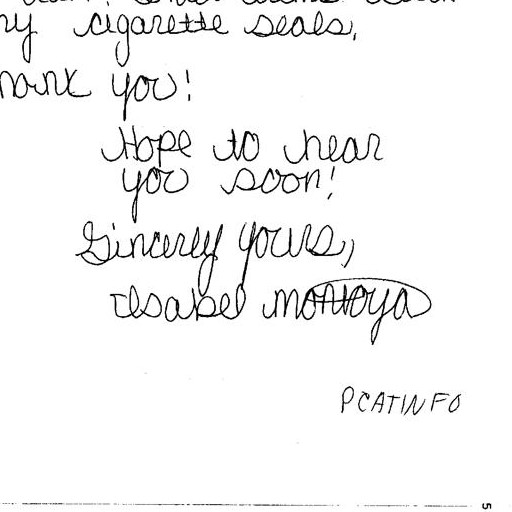 cigarette seals,
Thank you!
Hope to hear
you soon!
Sincerly yours,
Isabel Montoya
PCATINFO
5